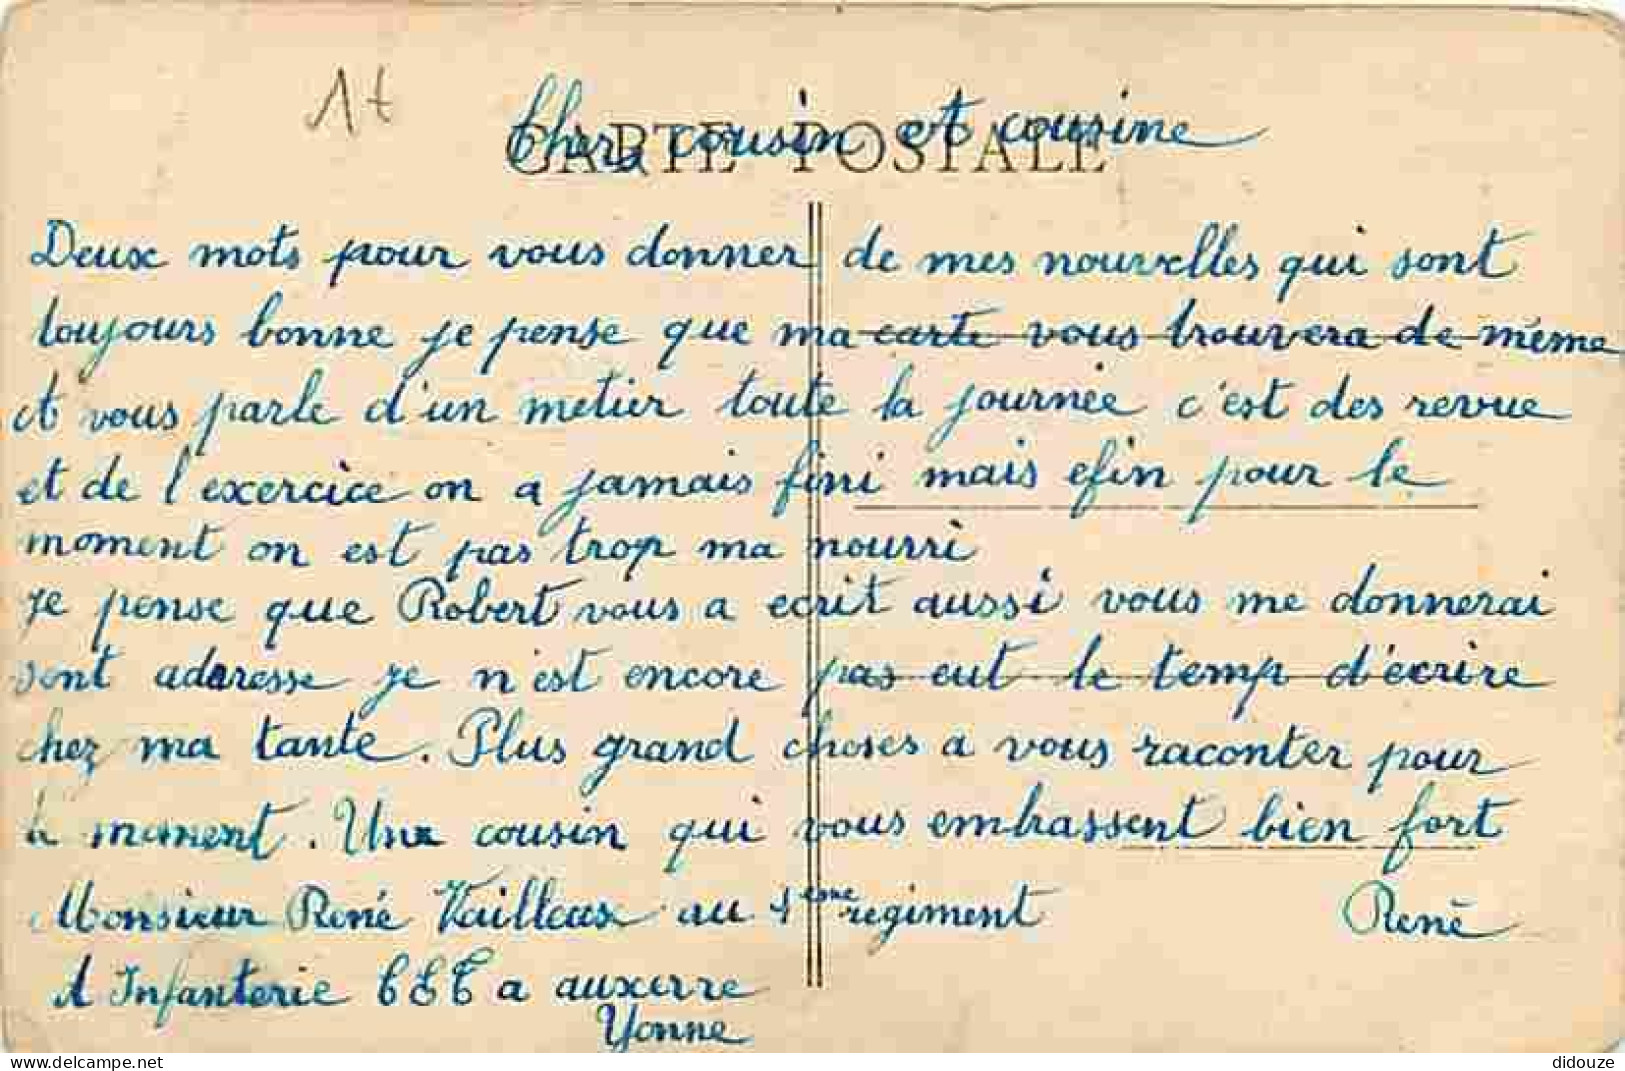 1t
CARTE POSTALE
Chers cousin et cousine
Deux mots pour vous donner de mes nouvelles qui sont
toujours bonne je pense que ma carte vous trouvera de même
et vous parle d'un metier toute la journée c'est des revue
et de l'exercice on a jamais fini mais efin pour le
moment on est pas trop ma nourri
je pense que Robert vous a ecrit aussi vous me donnerai
sont adaresse je n'est encore pas eut le temp d'écrire
chez ma tante. Plus grand choses a vous raconter pour
le moment. Une cousin qui vous embrassent bien fort
Monsieur René Vailleau au 4ème regiment René
d Infanterie a auxerre
Yonne
delcampe.net
didouze